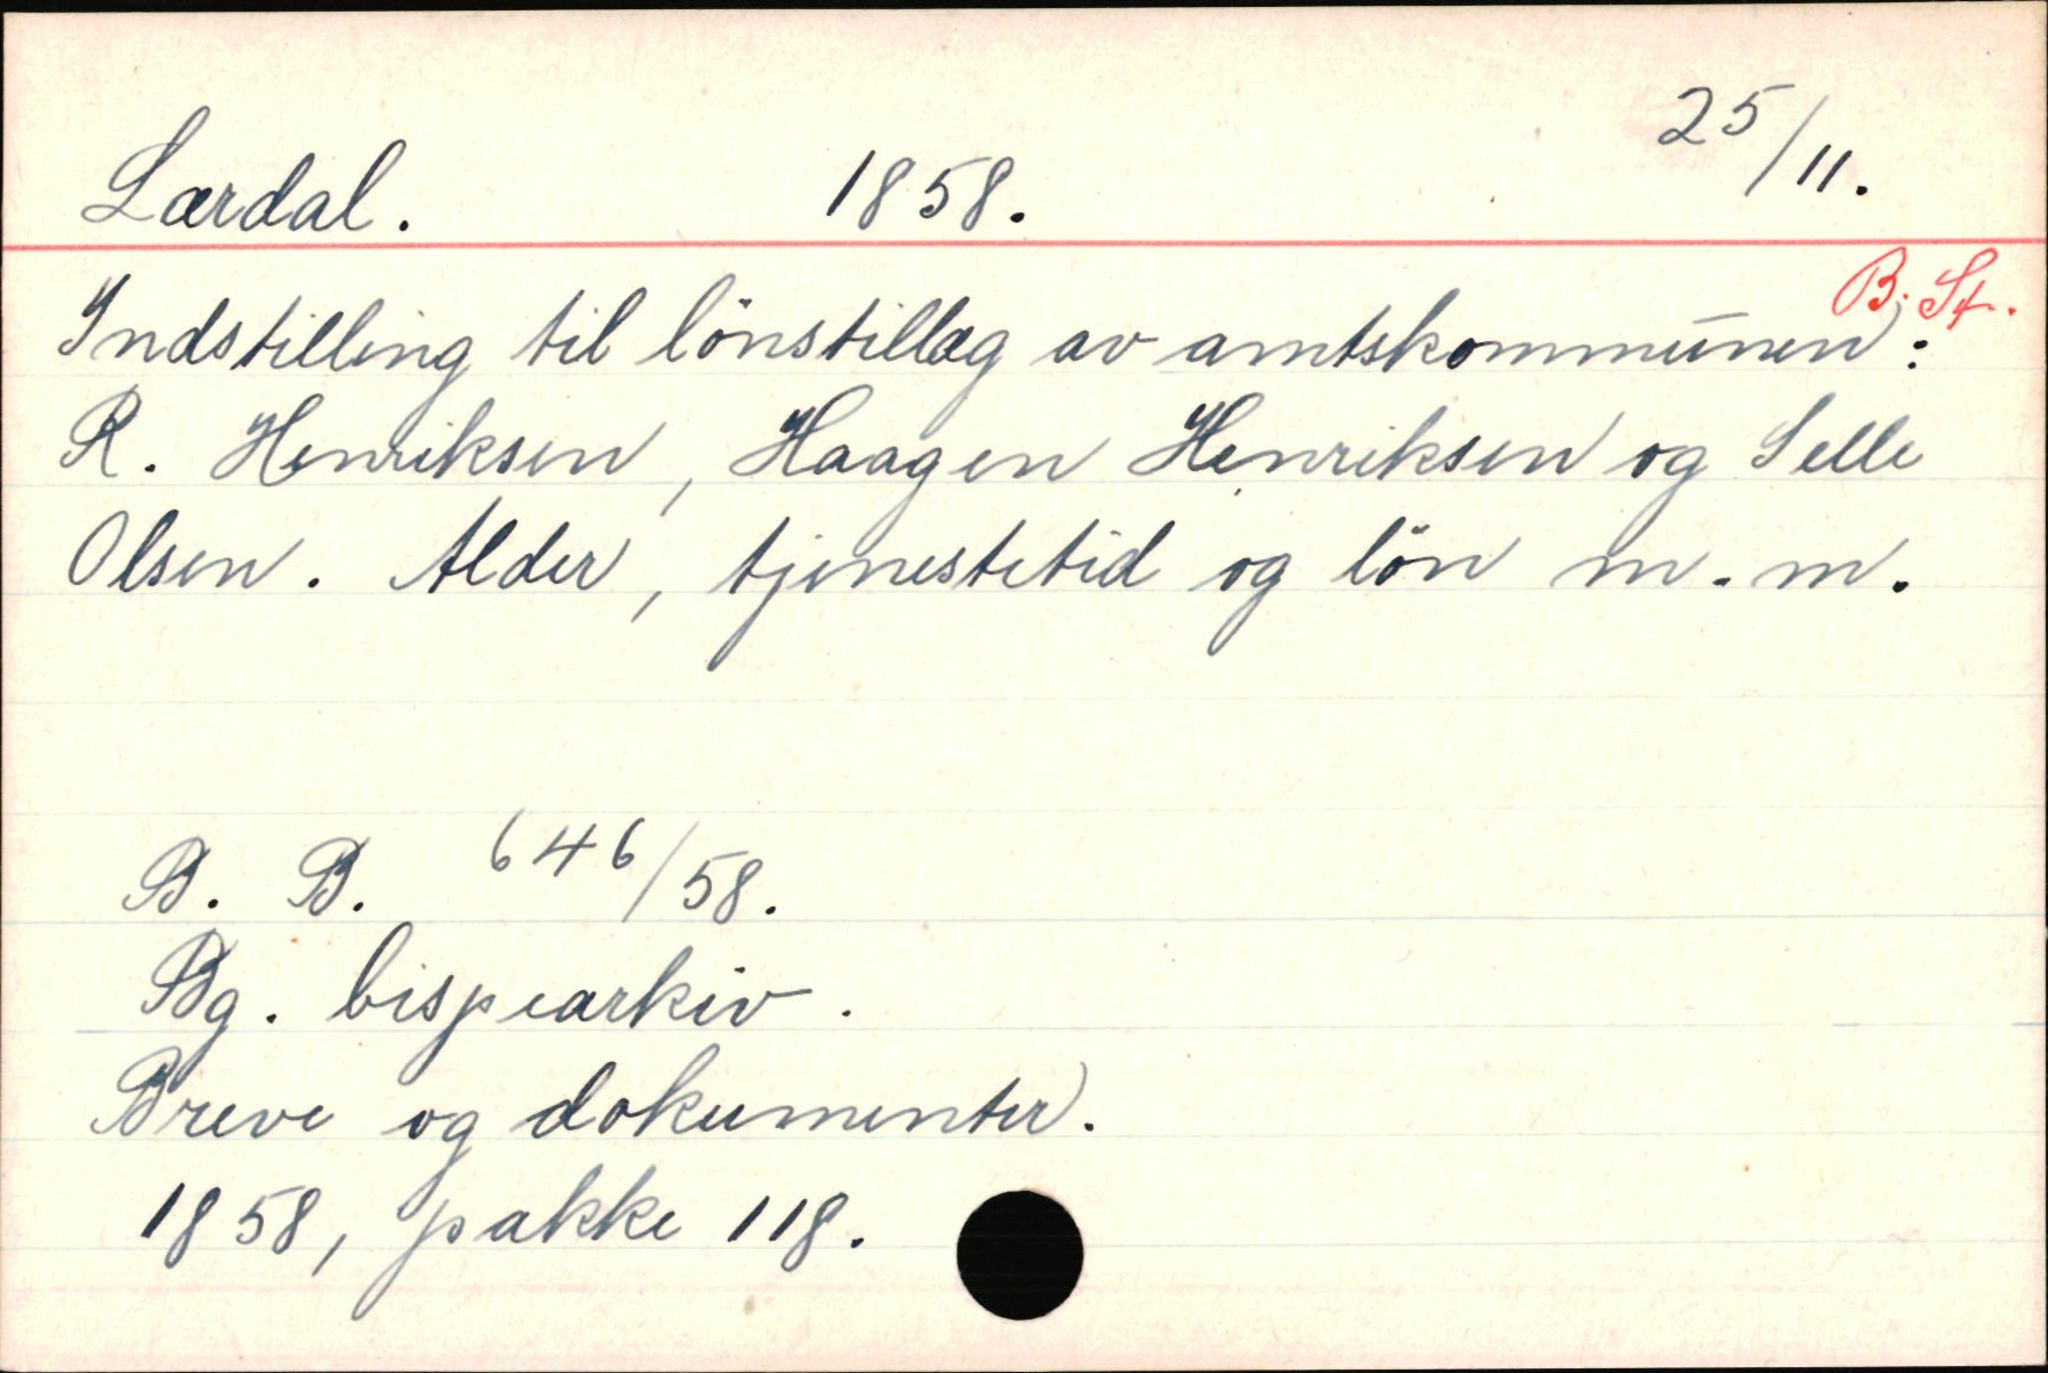 Lærdal. 1858. 25/11.
B. St.
Indstilling til lönstillæg av amtskommunen:
R. Henriksen, Haagen Henriksen og Selle
Olsen. Alder, tjenestetid og lön m.m.
B. B. 646/58.
Bg. bispearkiv.
Breve og dokumenter.
1858, pakke 118.